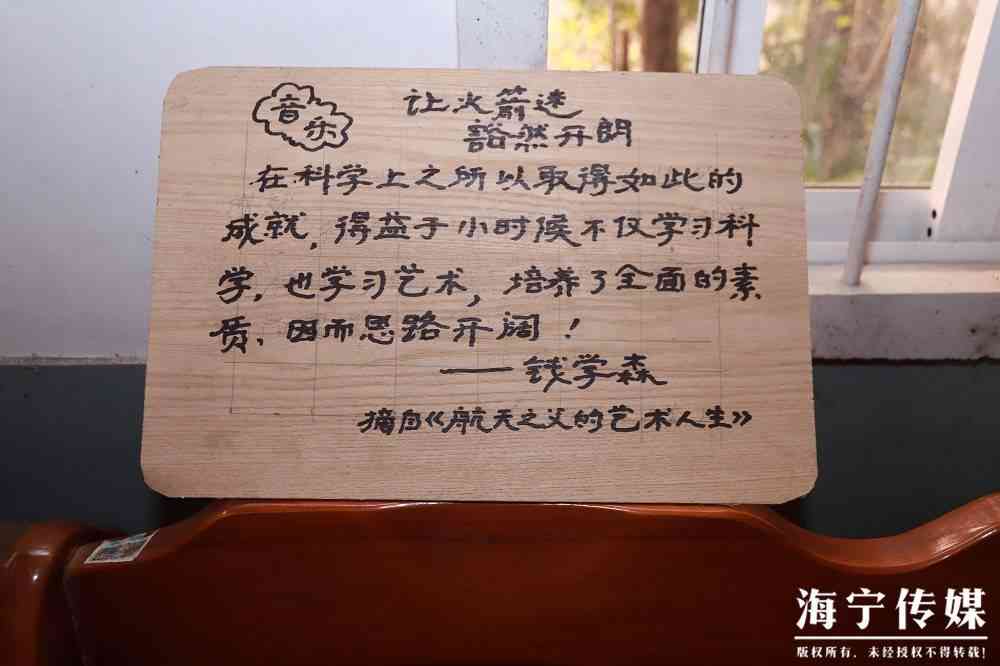 音乐
让火箭迷
豁然开朗
在科学上之所以取得如此的
成就,得益于小时候不仅学习科
学,也学习艺术,培养了全面的素
质、因而思路开阔!
——钱学森
摘自《航天之父的艺术人生》
海宁传媒
版权所有,未经授权不得转载!